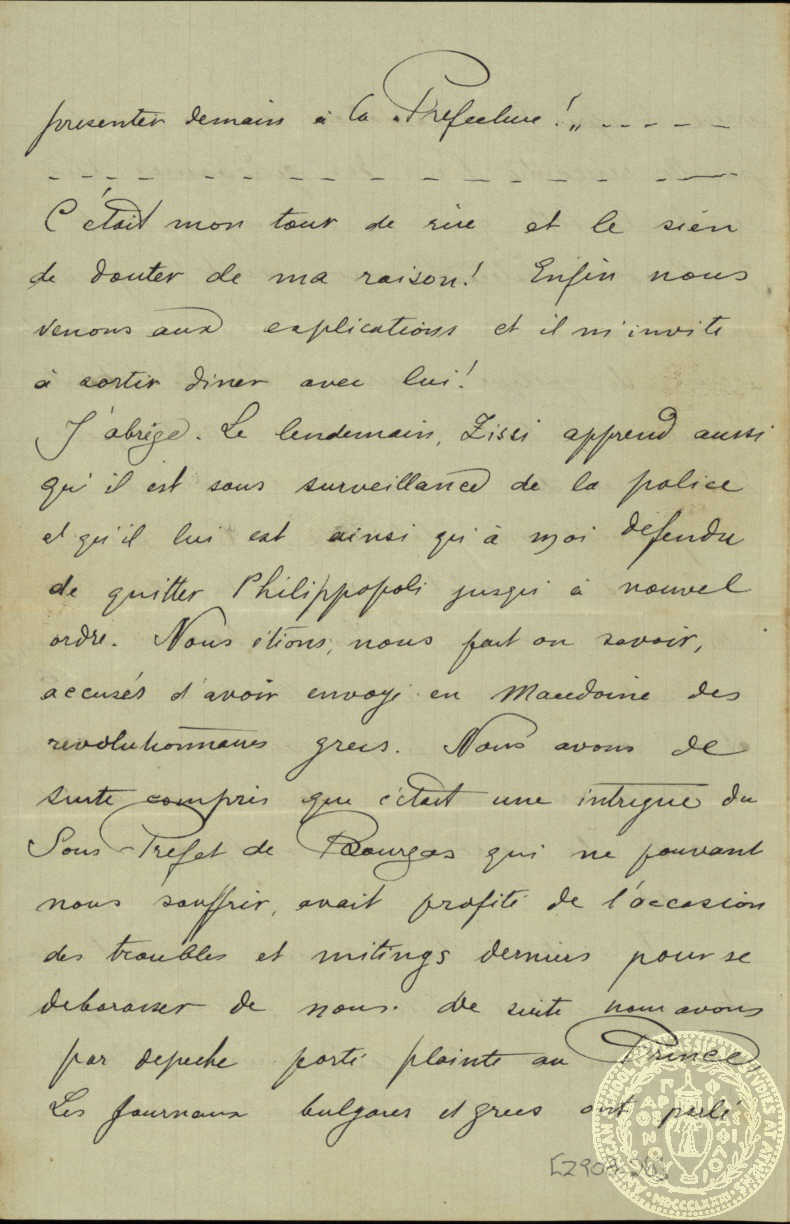 presenter demain à la Prefecture!„ - - - - -
- - - - - - - - - - - - - - -
C'était mon tour de rire et le sien
de douter de ma raison! Enfin nous
venons aux explications et il m'invite
à sortir diner avec lui!
J'abrége. Le lendemain, Zissi apprend aussi
qu'il est sous surveillance de la police
et qu'il lui est ainsi qu'à moi défendu
de quitter Philippopoli jusqu'à nouvel
ordre. Nous étions, nous fait on savoir,
accusés d'avoir envoyé en Macedoine des
revolutionnaires grecs. Nous avons de
suite compris que c'était une intrigue du
Sous-Prefet de Bourgas qui ne pouvant
nous souffrir, avait profité de l'occasion
des troubles et mitings derniers pour se
debarasser de nous. De suite nous avons
par depeche porté plainte au Prince,
Les journaux bulgares et grecs ont parlé